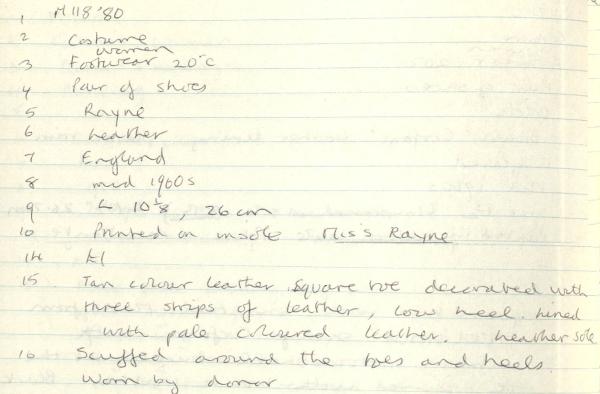 1 M118'80
2 Costume
women
3 Footwear 20°C
4 Pair of shoes
5 Rayne
6 Leather
7 England
8 mid 1960s
9 L 10⅛, 26 cm
10 Printed on insole Miss Rayne
14 £1
15 Tan colour leather Square toe decorated with
three strips of leather, low heel. Lined
with pale coloured leather. Leather sole
16 Scuffed around the toes and heels.
Worn by donor